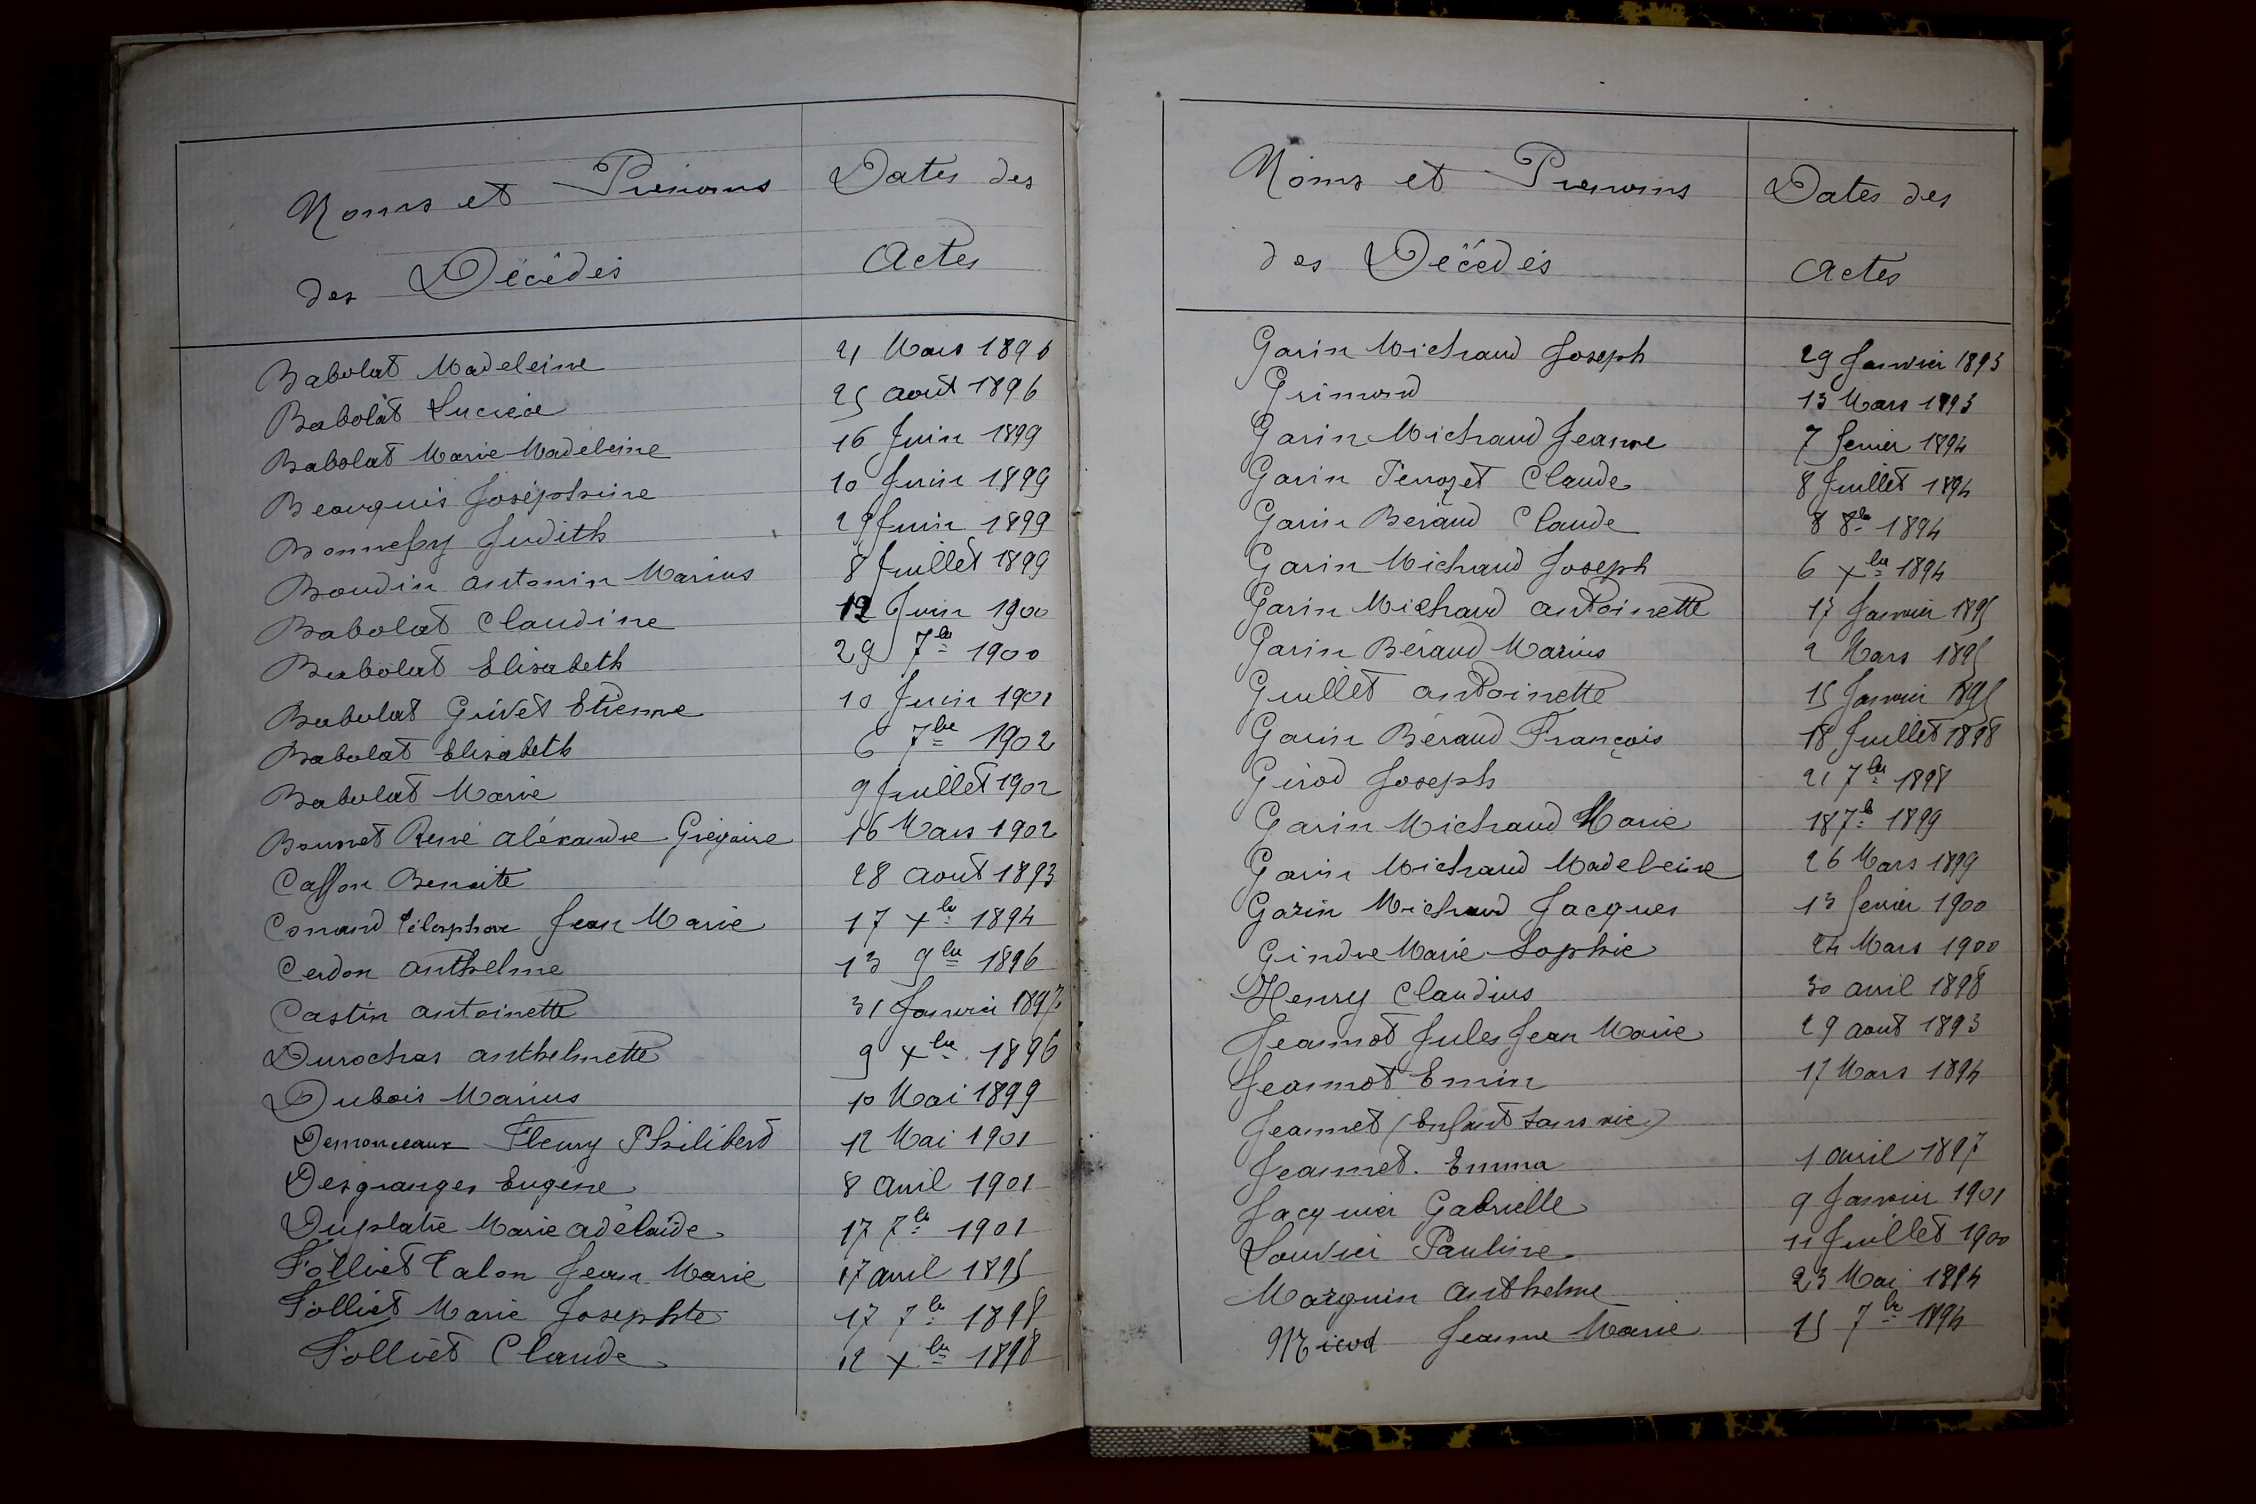 Noms et Prénoms
des Décédés
Dates des
Actes
Babolat Madeleine 21 Mars 1896
Babolat Lucrèce 25 aout 1896
Babolat Marie Madeleine 16 Juin 1899
Josephine 10 Juin 1899
Judith 29 Juin 1899
Boudin antonin Marius 8 Juillet 1899
Babolat Claudine 12 Juin 1900
Babolat Elisabeth 29 7bre 1900
Babolat Grivet Etienne 10 Juin 1901
Babolat Elisabeth 6 7bre 1902
Babolat Marie 9 Juillet 1902
Bonnet René aléxandre Grégoire 16 Mars 1902
Casson Benoite 28 aout 1893
Conand Télesphore Jean Marie 17 xbre 1894
Cerdon anthelme 13 9bre 1896
Castin antoinette 31 Janvier 1897
Durochas anthelmette 9 xbre 1896
Dubois Marius 10 Mai 1899
Demonceaux Fleury Philibert 12 Mai 1901
Desgranges Eugène 8 avril 1901
Duplatre Marie adélaïde 17 7bre 1901
Folliet Talon Jean Marie 17 avril 1895
Folliet Marie Josephte 17 7bre 1898
Folliet Claude 12 xbre 1898
Noms et Prénoms
des Décédés
Dates des
Actes
Garin Michaud Joseph 29 Janvier 1893
Grimand 13 Mars 1893
Garin Michaud Jeanne 7 fevrier 1894
Garin Perrozet Claude 8 Juillet 1894
Garin Béraud Claude 8 8bre 1894
Garin Michaud Joseph 6 xbre 1894
Garin Michaud antoinette 17 Janvier 1895
Garin Béraud Marius 2 Mars 1895
Guillet antoinette 15 Janvier 1895
Garin Béraud François 18 Juillet 1898
Girod Joseph 21 7bre 1898
Garin Michaud Marie 18 7bre 1899
Garin Michaud Madeleine 26 Mars 1899
Garin Michaud Jacques 13 fevrier 1900
Gindre Marie Sophie 24 Mars 1900
Henry Claudius 30 avril 1898
Jeannot Jules Jean Marie 29 aout 1893
Jeannot Emin 17 Mars 1894
Jeannet (Enfant sans vie)
Jeannet. Emma 1 avril 1897
Jacquier Gabrielle 9 Janvier 1901
Louvier Pauline 11 Juillet 1900
Marguin anthelme 23 Mai 1894
Nicod Jeanne Marie 15 7bre 1894